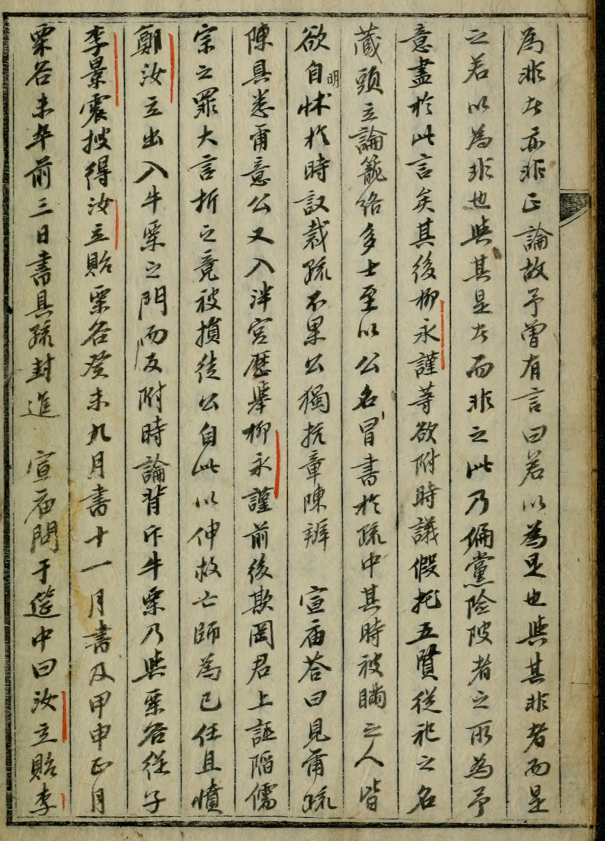 為非者亦非正論故予曾有言曰若以為是也與其非者而是
之若以為非也與其是者而非之此乃偏黨險陂者之所為予
意盡於此言矣其後柳永謹等欲附時議假托五賢從祀之名
藏頭立論籠絡多士至以公名冒書於疏中其時被瞞之人皆
欲自明怵於時議裁疏不果公獨抗章陳辨 宣庙答曰見爾疏
陳具悉爾意公又入泮宮歷舉柳永謹前後欺罔君上誣陷儒
宗之罪大言折之竟被損徒公自此以伸救亡師為己任且憤
鄭汝立出入牛栗之門而反附時論背斥牛栗乃與栗谷從子
李景震搜得汝立貽栗谷癸未九月書十一月書及甲申正月
栗谷未卒前三日書具疏封進 宣庙問于筵中曰汝立貽李